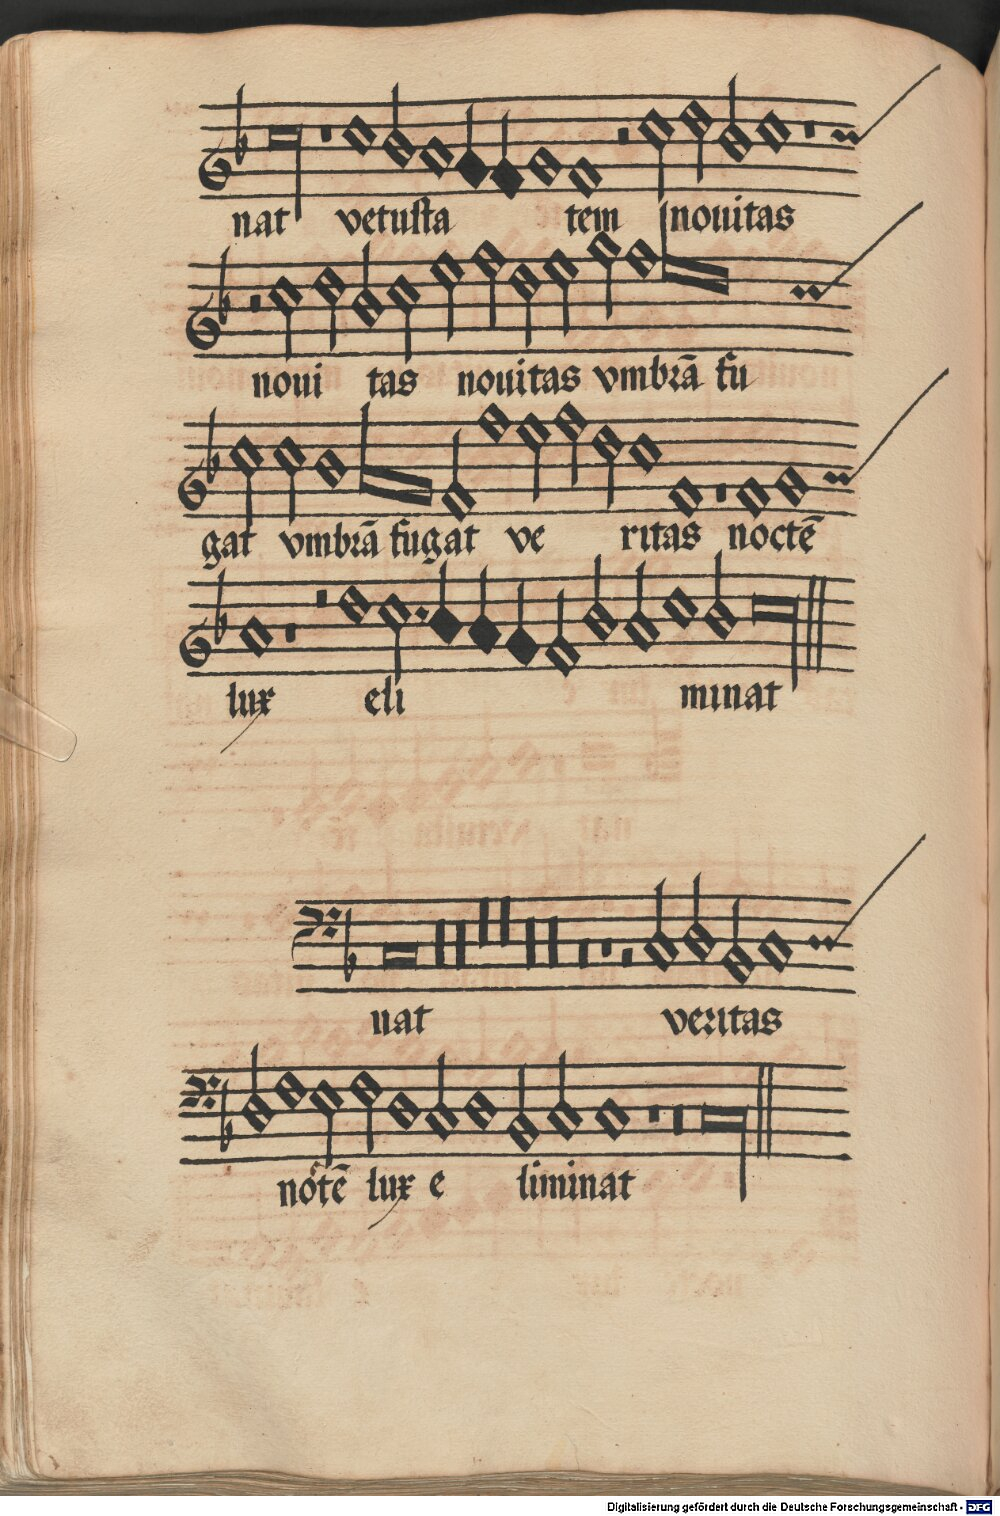 nat vetusta tem nouitas
noui tas nouitas vmbrā fu
gat vmbrā fugat ve ritas noctē
lux eli minat
nat veritas
nōtē lux e liminat
Digitalisierung gefördert durch die Deutsche Forschungsgemeinschaft - DFG